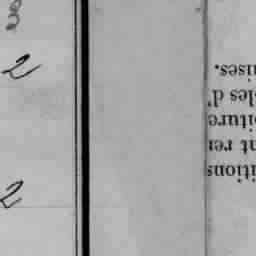 2
2
itions
nt ren
oiture
les d'
ises.